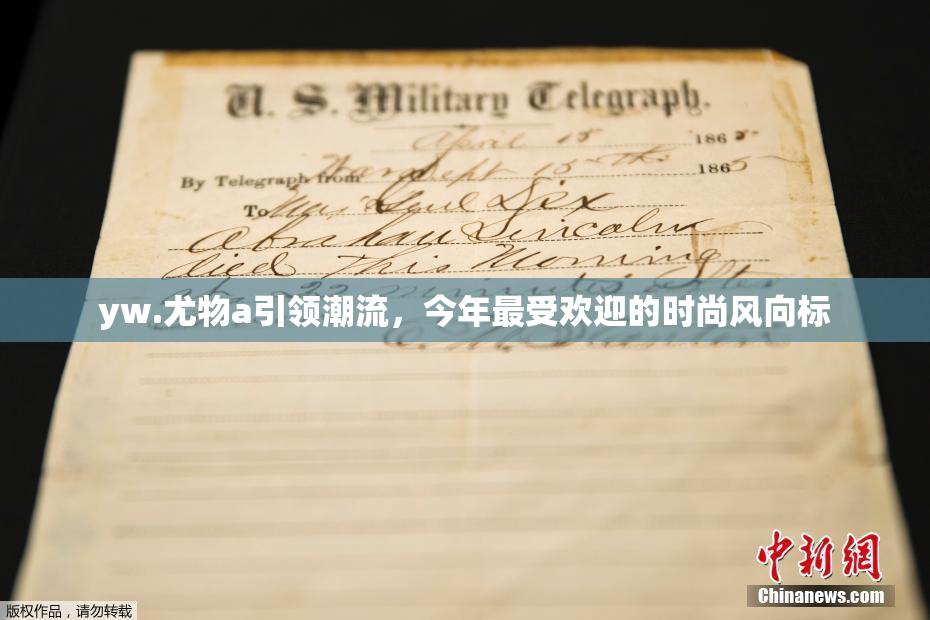 U. S. Military Telegraph.
April 15 1865
By Telegraph from War Dept 15th 1865
To Maj Genl Dix
Abraham Lincoln
died this Morning
at 22 minutes after
yw.尤物a引领潮流，今年最受欢迎的时尚风向标
E. M. Stanton
中新網
Chinanews.com
版权作品，请勿转载